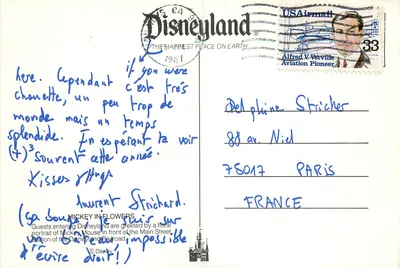 Disneyland
"THE HAPPIEST PLACE ON EARTH"
CA
1987
USAirmail
33
Alfred V. Verville
Aviation Pioneer
if you were
here. Cependant c'est très
chouette, un peu trop de
monde mais un temps
splendide. En espérant te voir
(+)³ souvent cette année.
Kisses & Hugs
Laurent Strichard.
(ça bouge, je suis sur
un bâteau impossible
d'écrire droit!)
MICKEY IN FLOWERS
Guests entering Disneyland are greeted by a floral
portrait of Mickey Mouse in front of the Main Street
Station of the Disneyland Railroad.
© Disney
Delphine Stricher
88 av. Niel
75017 PARIS
FRANCE